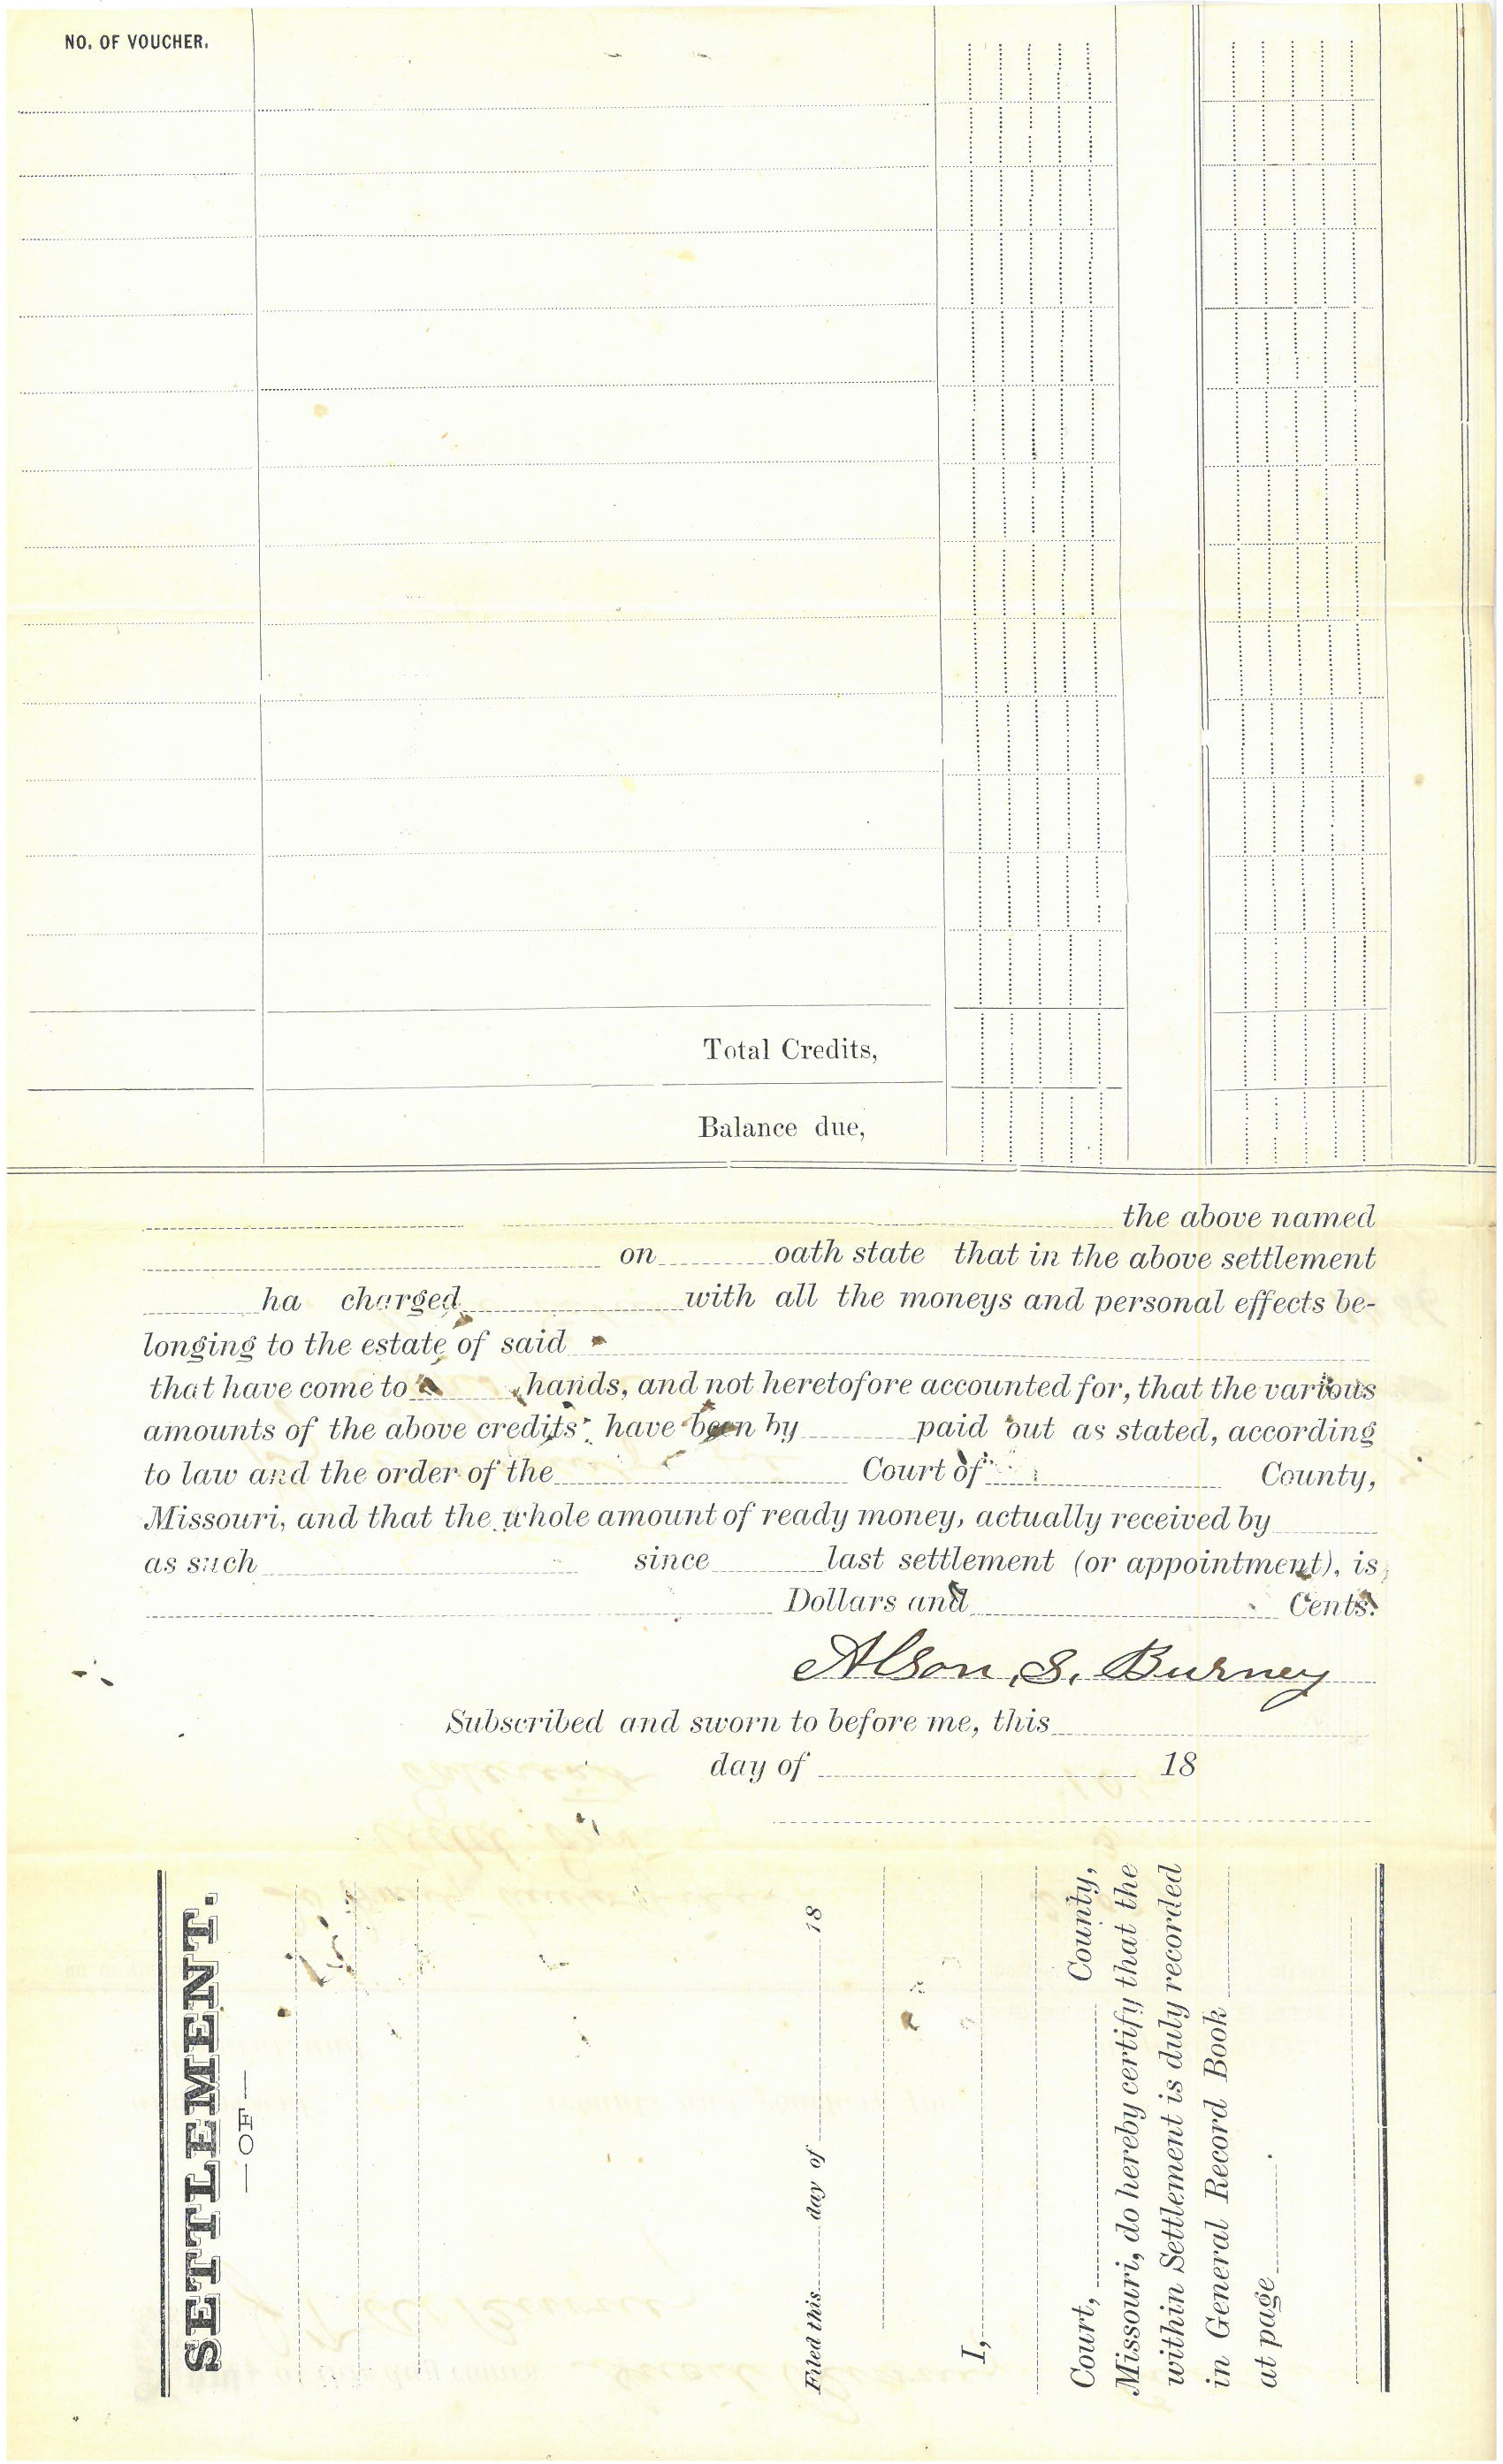 NO. OF VOUCHER.
Total Credits,
Balance due,
the above named
on oath state that in the above settlement
ha charged with all the moneys and personal effects be-
longing to the estate of said
that have come to hands, and not heretofore accounted for, that the various
amounts of the above credits have been by paid out as stated, according
to law and the order of the Court of County,
Missouri, and that the whole amount of ready money, actually received by
as such since last settlement (or appointment), is
Dollars and Cents.
Alson, S. Burney
Subscribed and sworn to before me, this
day of 18
SETTLEMENT.
— OF —
Filed this day of 18
I,
Court, County,
Missouri, do hereby certify that the
within Settlement is duly recorded
in General Record Book
at page .